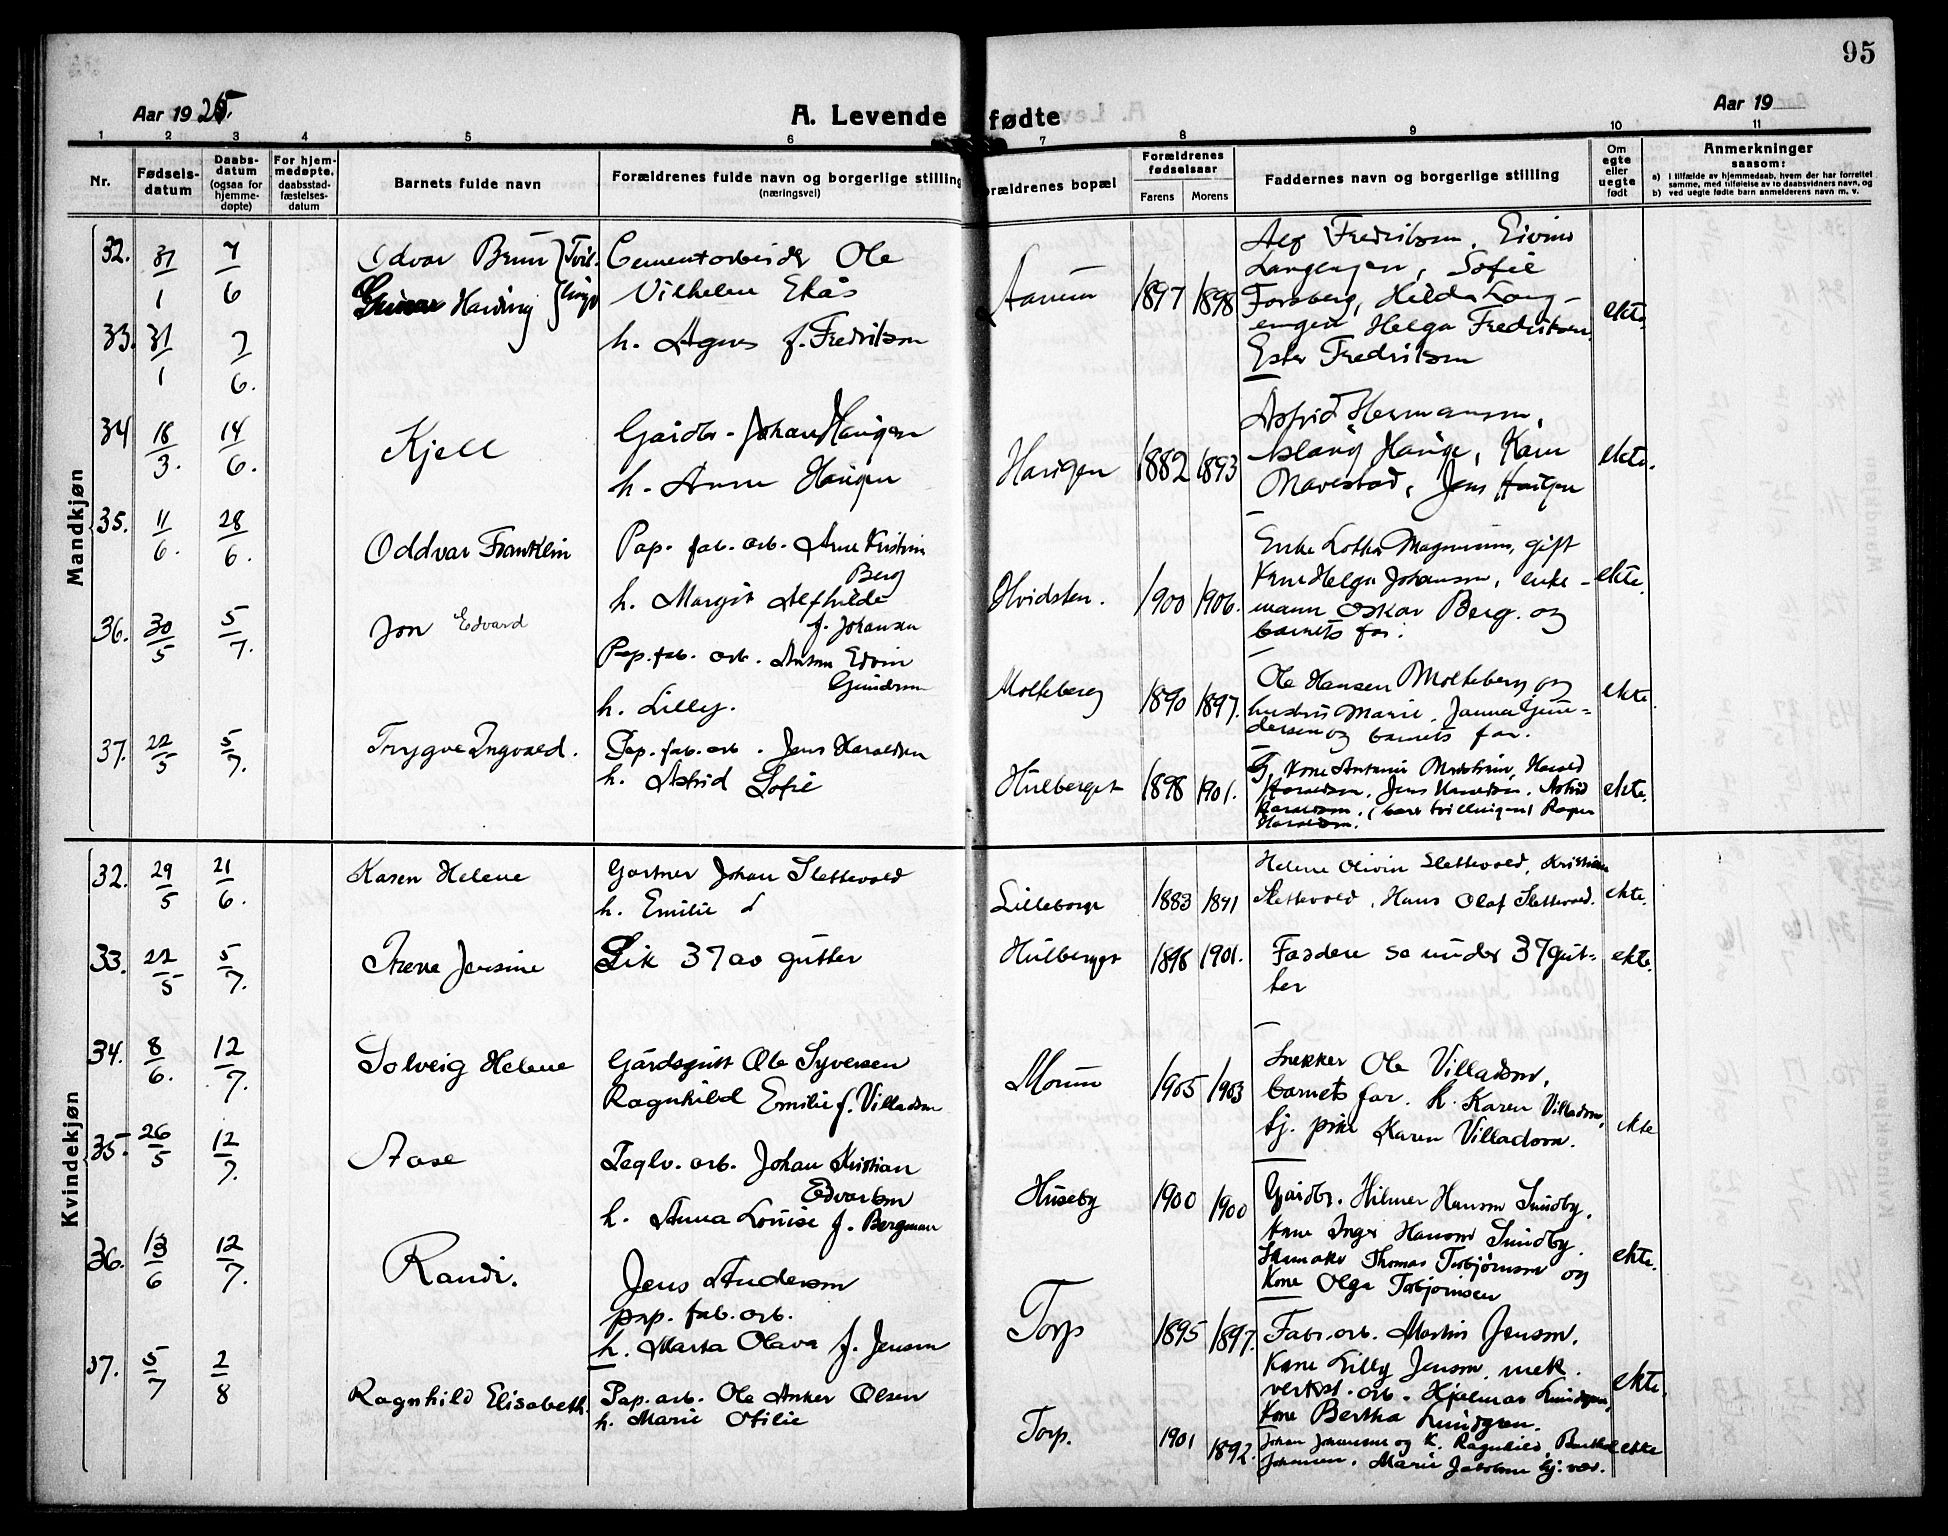 95
Aar 1925.
A. Levende fødte
Aar 19
1 2 3 4 5 6 7 8 9 10 11
Nr.
Fødsels-
datum
Daabs-
datum
(ogsaa for
hjemme-
døpte)
For hjem-
medøpte.
daabsstad-
fæstelses-
datum
Barnets fulde navn
Forældrenes fulde navn og borgerlige stilling
(næringsvei)
Forældrenes bopæl
Forældrenes
fødselsaar
Farens Morens
Faddernes navn og borgerlige stilling
Om
egte
eller
uegte
født
Anmerkninger
saasom:
a) i tilfælde av hjemmedaab, hvem der har forrettet
samme, med tilføielse av to daabsvidners navn, og
b) ved uegte fødte barn anmelderens navn m. v.
Mandkjøn
32. 31/1 7/6 Odvar Brun Tvil-
33. 31/1 7/6. Gunnar Harding linger
Cementarbeider Ole
Vilhelm Ekås
h. Agnes f. Fredriksen
Aarum 1897 1898
Alf Fredriksen, Eivind
Langengen, Sofie
Forsberg, Hilda Lang-
engen, Helga Fredriksen,
Ester Fredriksen
ekte.
34 18/3. 14/6. Kjell
Gårdbr. Johan Haugen
h. Anna Haugen
Haugen 1882 1893
Astrid Hermansen,
Aslaug Hauge, Kåre
Navestad, Jens Haugen
ekte.
35. 11/6. 28/6. Oddvar Franklin
Pap. fab. arb. Arne Kristian
Berg
h. Margit Alfhilde
f. Johansen
Hvidsten. 1900 1906.
Enke Lotha Magnussen, gift
Kone Helga Johansen, enke-
mann Oskar Berg. og
barnets far.
ekte.
36. 30/5 5/7. Jon Edvard
Pap. fab. arb. Anton Edvin
Gundersen
h. Lilly.
Molteberg 1890 1897.
Ole Hansen Molteberg og
hustru Marie, Janna Gun-
dersen og barnets far.
ekte
37. 22/5 5/7. Trygve Ingvald.
Pap. fab. arb. Jens Haraldsen
h. Astrid Sofie
Hulberget 1898 1901.
G. Kone Antonie Harald
Haraldsen, Jens Haraldsen, Astrid
Haraldsen. (bare tvillingen) Ragna
Haraldsen.
ekte.
Kvindekjøn
32. 29/5 21/6. Karen Helene
Gartner Johan Slettevold
h. Emilie
Lilleborge 1883 1891
Helene Olivia Slettevold, Kristian
Slettevold, Hans Olaf Slettevold.
ekte.
33. 22/5 5/7. Irene Jensine
Lik 37 av gutter
Hulberget 1898 1901.
Faddere se under 37 gut-
ter
ekte.
34. 8/6. 12/7. Solveig Helene
Gårdsgutt Ole Syversen
Ragnhild Emilie f. Villadsen
Morum 1905 1903
Snekker Ole Villadsen,
barnets far. h. Karen Villadsen,
tj. pike Karen Villadsen.
ekte
35. 26/5 12/7. Aase
Teglv. arb. Johan Kristian
Edvardsen
h. Anna Louise f. Bergman
Huseby 1900 1900
Gårdbr. Hilmar Hansen Sundby,
Kone Inger Hansen Sundby.
Skomaker Thomas Torbjørnsen og
Kone Olga Torbjørnsen
ekte.
36. 13/6 12/7. Randi.
Jens Andersen
pap. fab. arb.
h. Marta Olava f. Jensen
Torp 1895 1897.
Fabr. arb. Martin Jensen,
Kone Lilly Jensen, mek.
verkst. arb. Hjalmar Lundgren,
Kone Bertha Lundgren.
ekte.
37. 5/7 2/8 Ragnhild Elisabeth.
Pap. arb. Ole Anker Olsen
h. Marie Otilie
Torp. 1901 1892.
Johan Johansen og k. Ragnhild,
Johansen, Marie Jakobsen hj. vær.
ekte